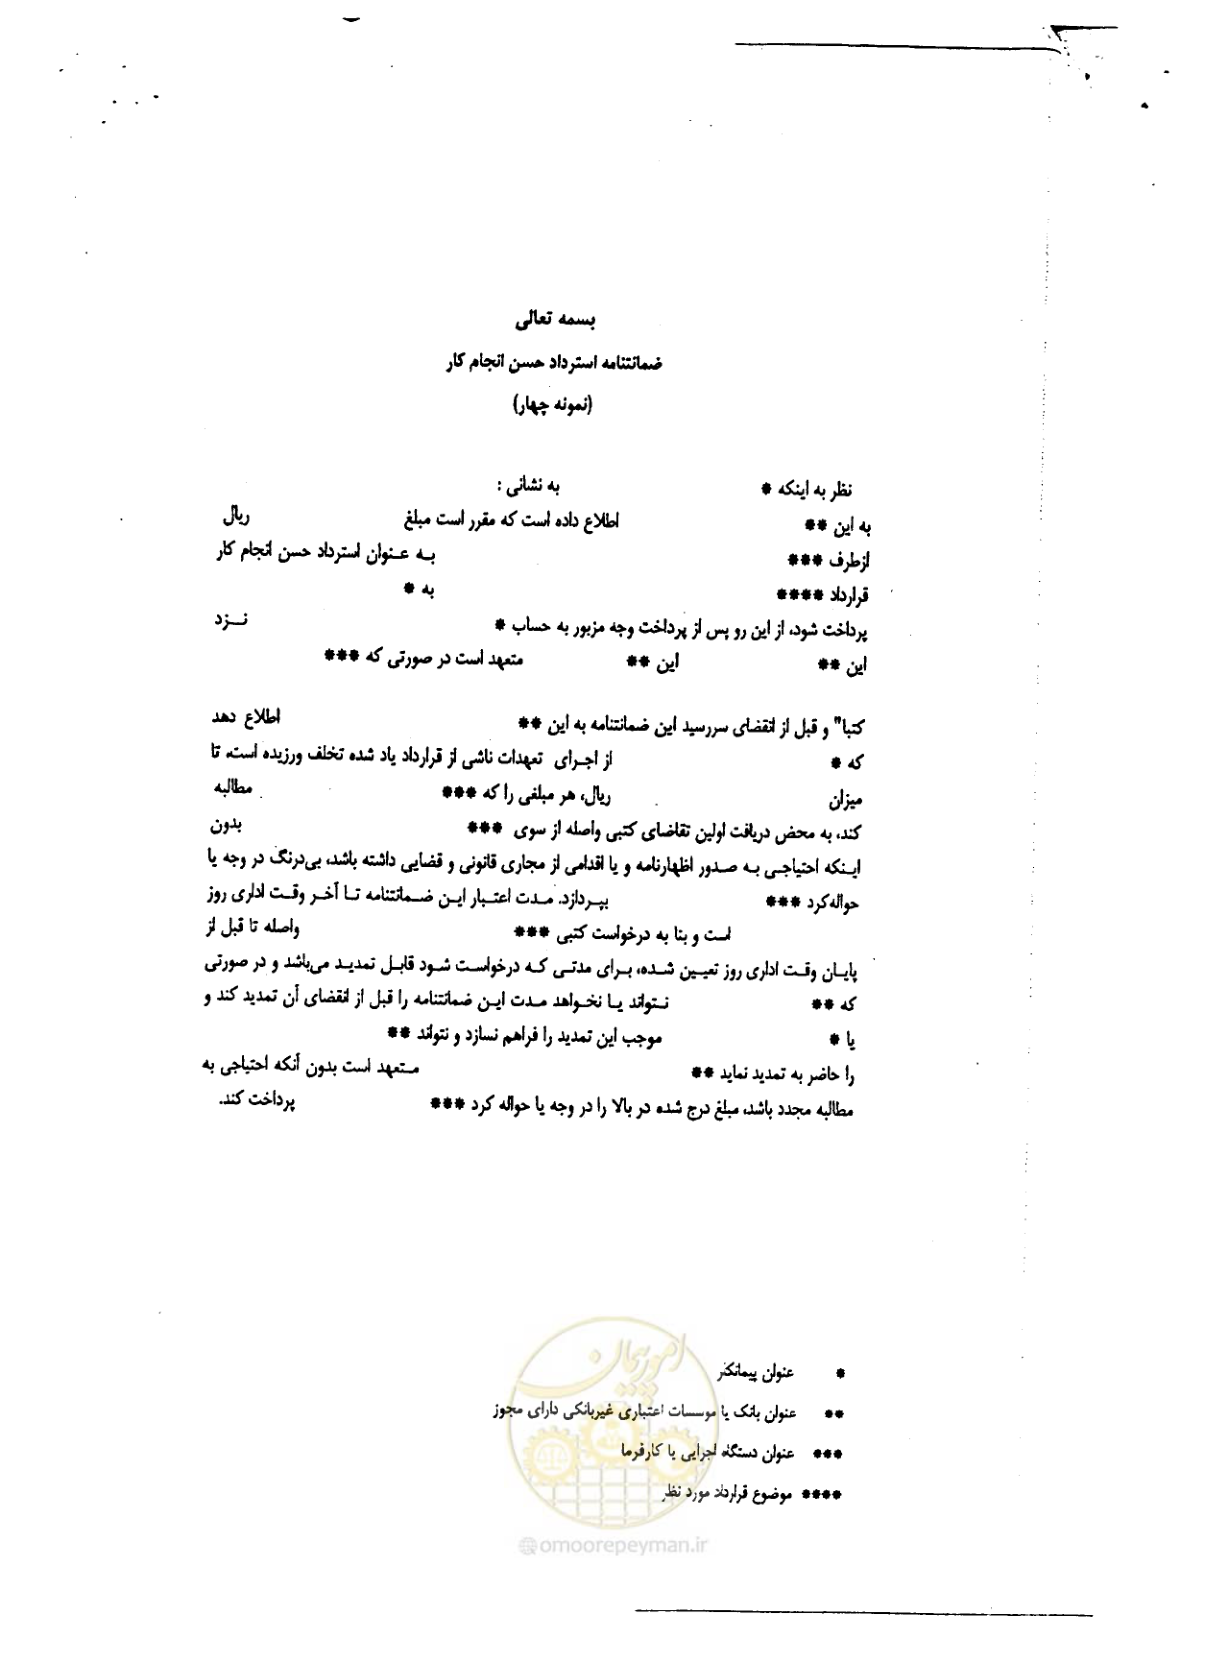 بسمه تعالی
ضمانتنامه استرداد حسن انجام کار
(نمونه چهار)
نظر به اینکه * به نشانی :
به این ** اطلاع داده است که مقرر است مبلغ ریال
ازطرف *** به عنوان استرداد حسن انجام کار
قرارداد **** به *
پرداخت شود، از این رو پس از پرداخت وجه مزبور به حساب * نزد
این ** این ** متعهد است در صورتی که ***
کتبا" و قبل از انقضای سررسید این ضمانتنامه به این ** اطلاع دهد
که * از اجرای تعهدات ناشی از قرارداد یاد شده تخلف ورزیده است، تا
میزان ریال، هر مبلغی را که *** مطالبه
کند، به محض دریافت اولین تقاضای کتبی واصله از سوی *** بدون
اینکه احتیاجی به صدور اظهارنامه و یا اقدامی از مجاری قانونی و قضایی داشته باشد، بی‌درنگ در وجه یا
حواله‌کرد *** بپردازد. مدت اعتبار این ضمانتنامه تا آخر وقت اداری روز
است و بنا به درخواست کتبی *** واصله تا قبل از
پایان وقت اداری روز تعیین شده، برای مدتی که درخواست شود قابل تمدید می‌باشد و در صورتی
که ** نتواند یا نخواهد مدت این ضمانتنامه را قبل از انقضای آن تمدید کند و
یا * موجب این تمدید را فراهم نسازد و نتواند **
را حاضر به تمدید نماید ** متعهد است بدون آنکه احتیاجی به
مطالبه مجدد باشد، مبلغ درج شده در بالا را در وجه یا حواله کرد *** پرداخت کند.
* عنوان پیمانکار
** عنوان بانک یا موسسات اعتباری غیربانکی دارای مجوز
*** عنوان دستگاه اجرایی یا کارفرما
**** موضوع قرارداد مورد نظر
امور پیمان
omoorepeyman.ir